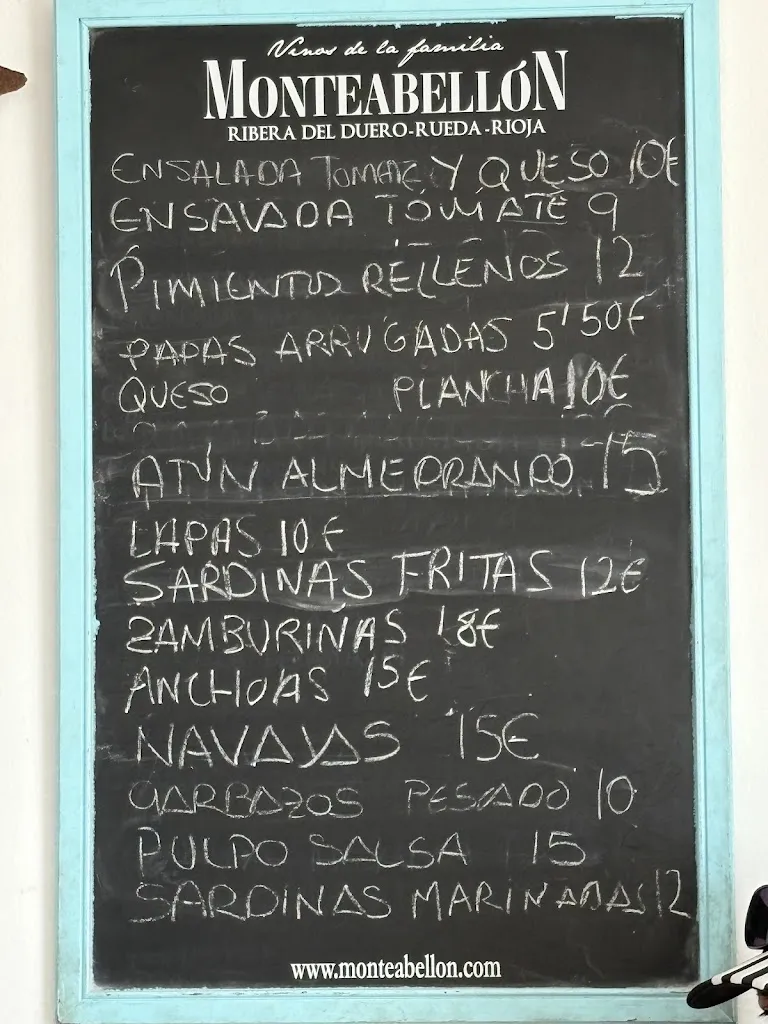 Vinos de la familia
MONTEABELLÓN
RIBERA DEL DUERO-RUEDA-RIOJA
ENSALADA TOMATE Y QUESO 10€
ENSAVADA TOMATE 9
PIMIENTOS RELLENOS 12
PAPAS ARRUGADAS 5'50€
QUESO PLANCHA 10€
ATÚN ALMEDRANDO 15
LAPAS 10€
SARDINAS FRITAS 12€
ZAMBURIÑAS 18€
ANCHOAS 15€
NAVAJAS 15€
GARBAZOS PESCADO 10
PULPO SALSA 15
SARDINAS MARINADAS 12
www.monteabellon.com